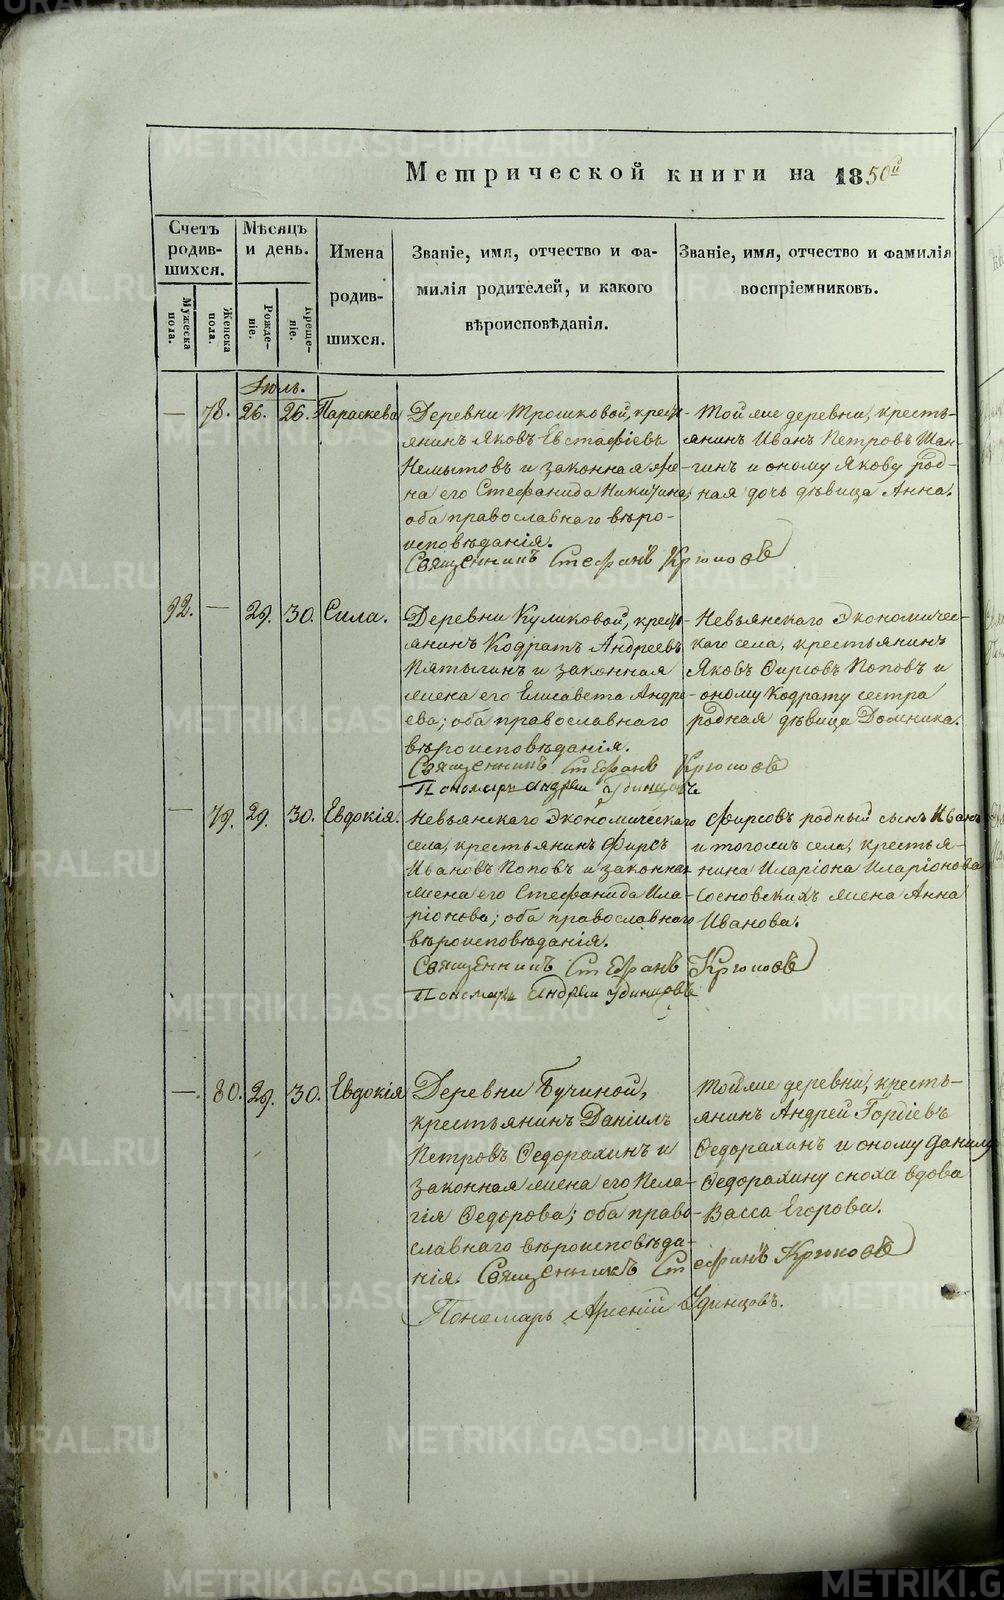 Метрической книги на 1850й
Счетъ родившихся.
Мужеска пола.
Женска пола.
Мѣсяцъ и день.
Рожденіе.
Крещеніе.
Имена родившихся.
Званіе, имя, отчество и фамилія родителей, и какого вѣроисповѣданія.
Званіе, имя, отчество и фамилія воспріемниковъ.
Іюль.
— 78. 26. 26. Параскева
Деревни Трошковой, кресть-
янинъ Яковъ Евстафіевъ
Немытовъ и законная же-
на его Стефанида Никитина,
оба православнаго вѣро-
исповѣданія.
Тойже деревни, кресть-
янинъ Иванъ Петровъ Шан-
гинъ и оному Якову род-
ная дочь дѣвица Анна.
Священникъ Стефанъ Крюковъ
92. — 29. 30. Сила.
Деревни Куликовой, кресть-
янинъ Кодратъ Андреевъ
Пятыгинъ и законная
жена его Елисавета Андре-
ева; оба православнаго
вѣроисповѣданія.
Невьянскаго Экономичес-
каго села, крестьянинъ
Яковъ Ѳирсовъ Поповъ и
оному Кодрату сестра
родная дѣвица Домника.
Священникъ Стефанъ Крюковъ
Пономарь Андрей Удинцовъ
— 79. 29. 30. Евдокія.
Невьянскаго Экономическаго
села, крестьянинъ Фирсъ
Ивановъ Поповъ и законная
жена его Стефанида Ила-
ріонова; оба православнаго
вѣроисповѣданія.
Фирсовъ родный сынъ Иванъ
и тогожъ села, крестья-
нина Иларіона Иларіонова
Сосновскихъ жена Анна
Иванова.
Священникъ Стефанъ Крюковъ
Пономарь Андрей Удинцовъ
— 80. 29. 30. Евдокія
Деревни Бучиной,
крестьянинъ Даніилъ
Петровъ Ѳедорахинъ и
законная жена его Пела-
гія Ѳедорова; оба право-
славнаго вѣроисповѣда-
нія.
Тойже деревни, кресть-
янинъ Андрей Гордіевъ
Ѳедорахинъ и оному Данилу
Ѳедорахину сноха вдова
Васса Егорова.
Священникъ Стефанъ Крюковъ
Пономарь Арсеній Удинцовъ.
METRIKI.GASO-URAL.RU